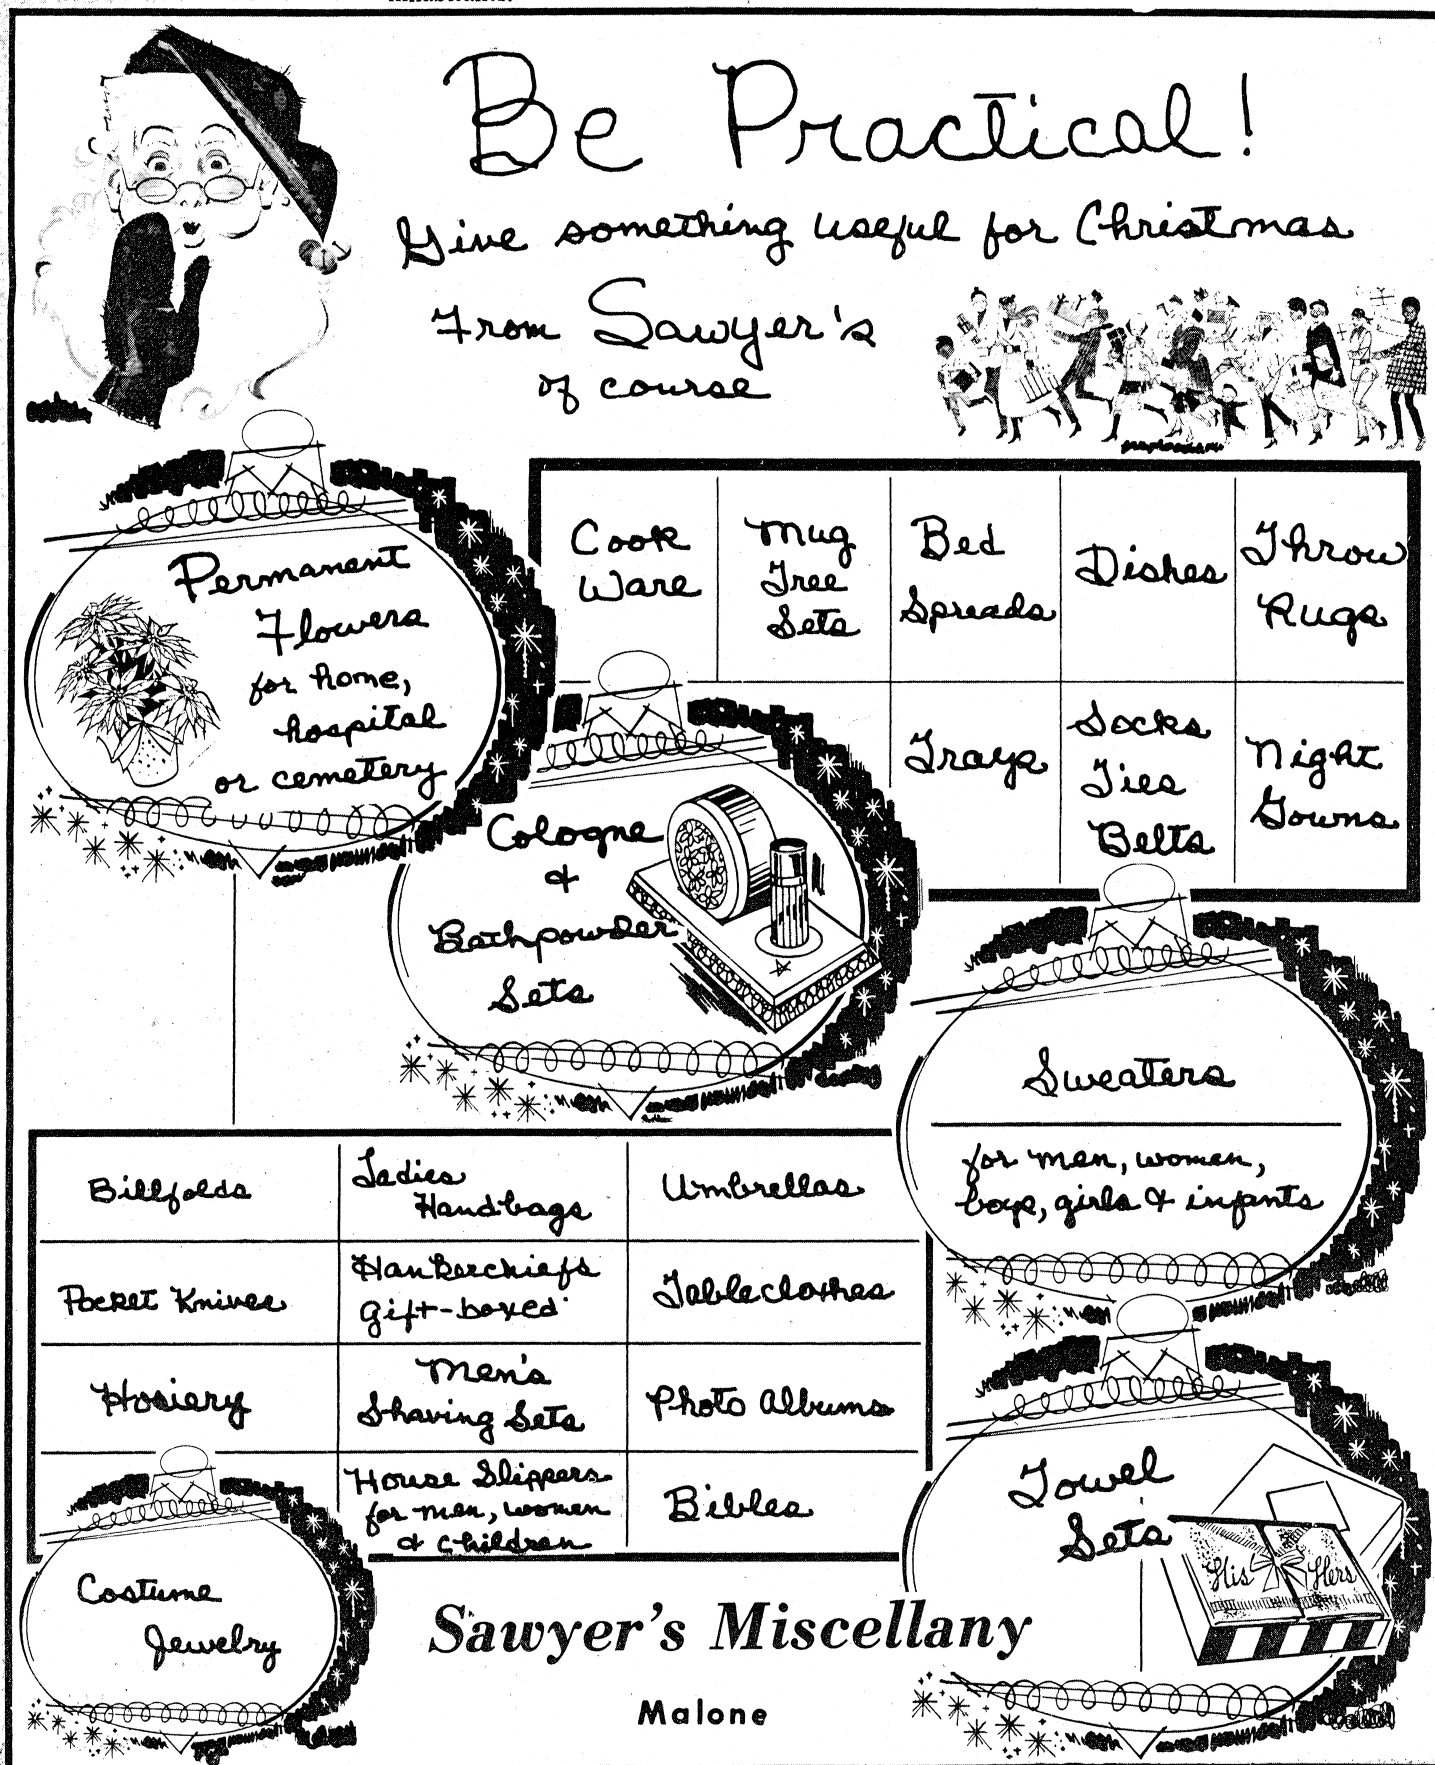 Be Practical!
Give something useful for Christmas
From Sawyer's
of course
Permanent
Flowers
for home,
hospital
or cemetery
Cook
Ware
Mug
Tree
Sets
Bed
Spreads
Dishes
Throw
Rugs
Trays
Socks
Ties
Belts
Night
Gowns
Cologne
&
Bathpowder
Sets
Sweaters
for men, women,
boys, girls & infants
Billfolds
Ladies
Handbags
Umbrellas
Pocket Knives
Hankerchiefs
gift-boxed
Tableclothes
Hosiery
Men's
Shaving Sets
Photo Albums
House Slippers
for men, women
& children
Bibles
Towel
Sets
His Hers
Costume
Jewelry
Sawyer's Miscellany
Malone